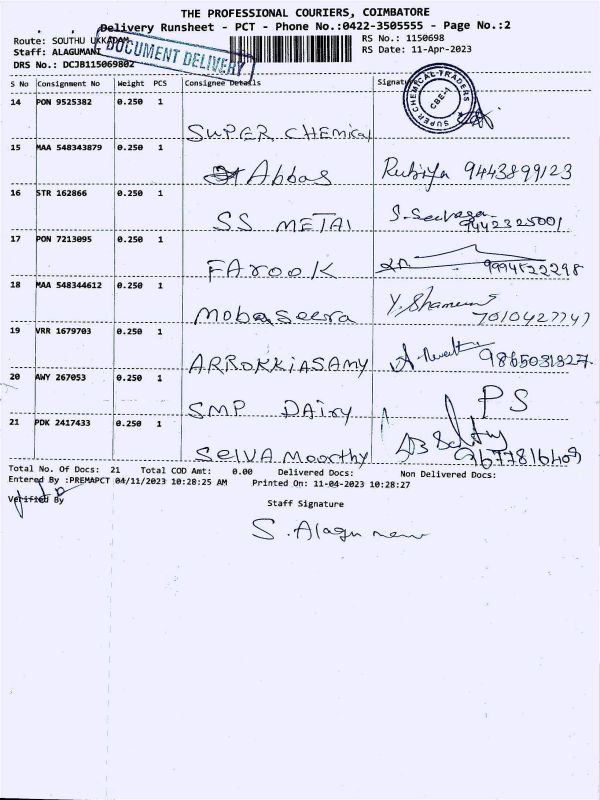 THE PROFESSIONAL COURIERS, COIMBATORE
Delivery Runsheet - PCT - Phone No.:0422-3505555 - Page No.:2
Route: SOUTHU UKKADAM
RS No.: 1150698
Staff: ALAGUMANI
RS Date: 11-Apr-2023
DOCUMENT DELIVERY
DRS No.: DCJB115069802
S No Consignment No Weight PCS Consignee Details Signature
SUPER CHEMICAL-TRADERS
CBE-1
14 PON 9525382 0.250 1
SUPER CHEMICAL
15 MAA 548343879 0.250 1
Abbas 9443899123
16 STR 162866 0.250 1
SS METAl 9442325001
17 PON 7213095 0.250 1
FArooK 9994522298
18 MAA 548344612 0.250 1
Mobaseera 7010427747
19 VRR 1679703 0.250 1
ARROKKiASAMY 9865031827
20 AWY 267053 0.250 1
SMP DAiry PS
21 PDK 2417433 0.250 1
SelVA Moorthy 9677816409
Total No. Of Docs: 21 Total COD Amt: 0.00 Delivered Docs: Non Delivered Docs:
Entered By :PREMAPCT 04/11/2023 10:28:25 AM Printed On: 11-04-2023 10:28:27
Verified By
Staff Signature